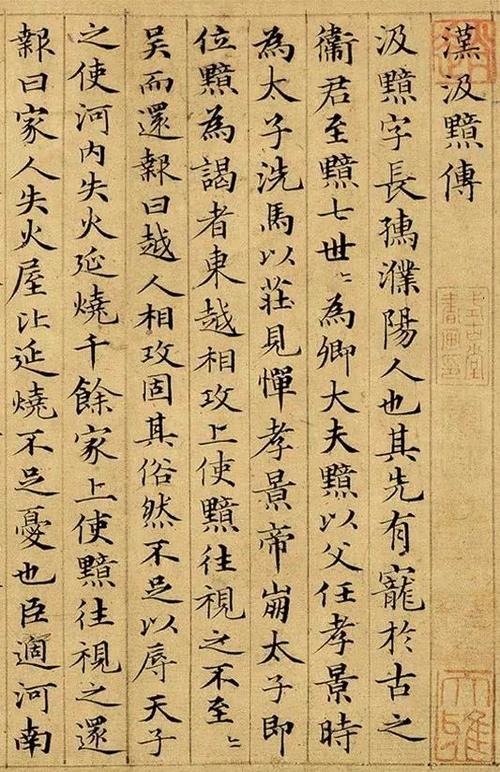 漢汲黯傳
汲黯字長孺濮陽人也其先有寵於古之
衛君至黯七世〻為卿大夫黯以父任孝景時
為太子洗馬以莊見憚孝景帝崩太子即
位黯為謁者東越相攻上使黯往視之不至〻
吴而還報曰越人相攻固其俗然不足以辱天子
之使河内失火延燒千餘家上使黯往視之還
報曰家人失火屋比延燒不足憂也臣適河南
大雅